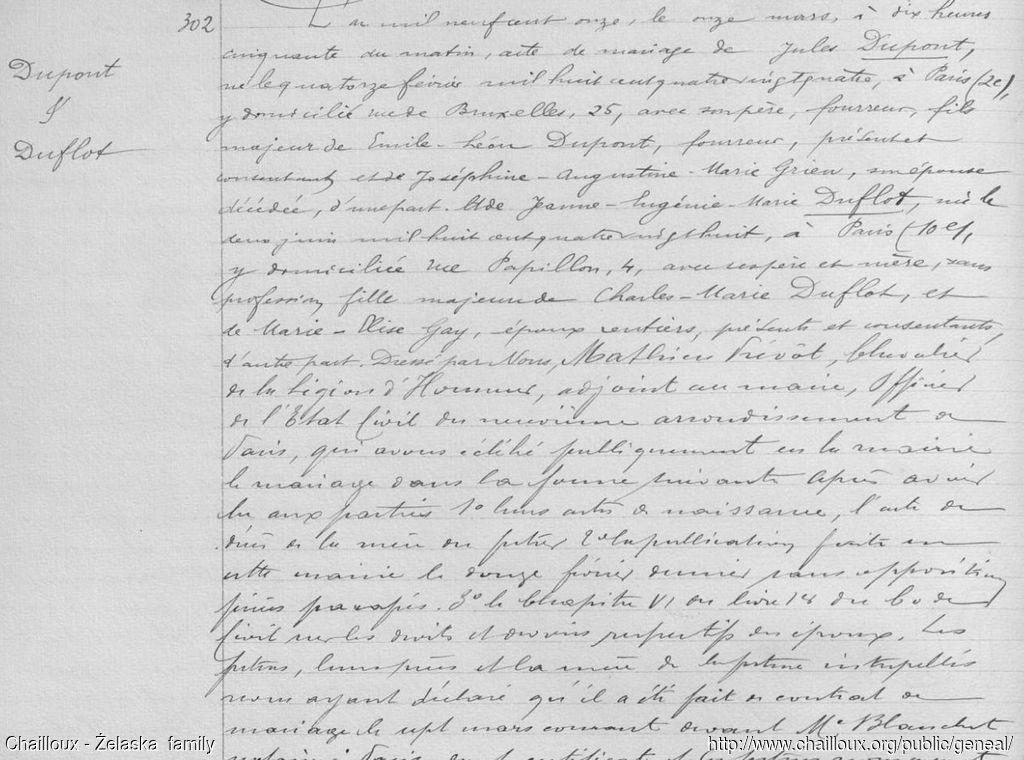 302
Dupont
&
Duflot
L'an mil neuf cent onze, le onze mars, à dix heures
cinquante du matin, acte de mariage de Jules Dupont,
né le quatorze février mil huit cent quatre vingt quatre, à Paris (2e),
y domicilié rue de Bruxelles, 25, avec son père, fourreur, fils
majeur de Emile-Léon Dupont, fourreur, présent et
consentant, et de Joséphine-Augustine-Marie Grieu, son épouse
décédée, d'une part. Et de Jeanne-Eugénie-Marie Duflot, née le
deux juin mil huit cent quatre vingt huit, à Paris (10e),
y domiciliée rue Papillon, 4, avec ses père et mère, sans
profession, fille majeure de Charles-Marie Duflot, et
de Marie-Elise Gay, époux rentiers, présents et consentants,
d'autre part. Dressé par Nous, Mathieu Prévôt, Chevalier
de la Légion d'Honneur, adjoint au maire, Officier
de l'Etat Civil du neuvième arrondissement de
Paris, qui avons célébré publiquement en la mairie
le mariage dans la forme suivante après avoir
lu aux parties 1o leurs actes de naissance, l'acte de
décès de la mère du futur 2o la publication, faite en
cette mairie le douze février dernier sans opposition,
pièces paraphées. 3o le Chapitre VI du livre 1er du Code
Civil sur les droits et devoirs respectifs des époux. Les
futurs, leurs pères et la mère de la future interpellés
nous ayant déclaré qu'il a été fait de contrat de
mariage le sept mars courant devant Me Blanchet
notaire à Paris
Chailloux - Żelaska family
http://www.chailloux.org/public/geneal/